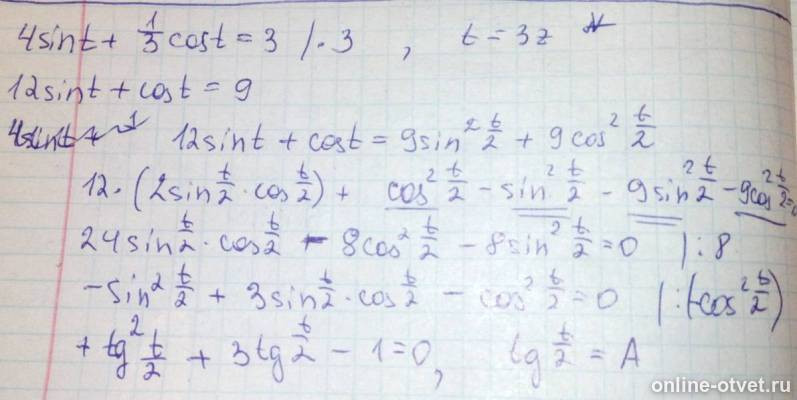 4sint + 1/3 cost = 3 /·3 , t = 3z
12sint + cost = 9
12sint + cost = 9sin² t/2 + 9cos² t/2
12·(2sin t/2 · cos t/2) + cos² t/2 - sin² t/2 - 9sin² t/2 - 9cos² t/2 = 0
24sin t/2 · cos t/2 - 8cos² t/2 - 8sin² t/2 = 0 |:8
-sin² t/2 + 3sin t/2 · cos t/2 - cos² t/2 = 0 |:(-cos² t/2)
+ tg² t/2 + 3tg t/2 - 1 = 0, tg t/2 = A
online-otvet.ru